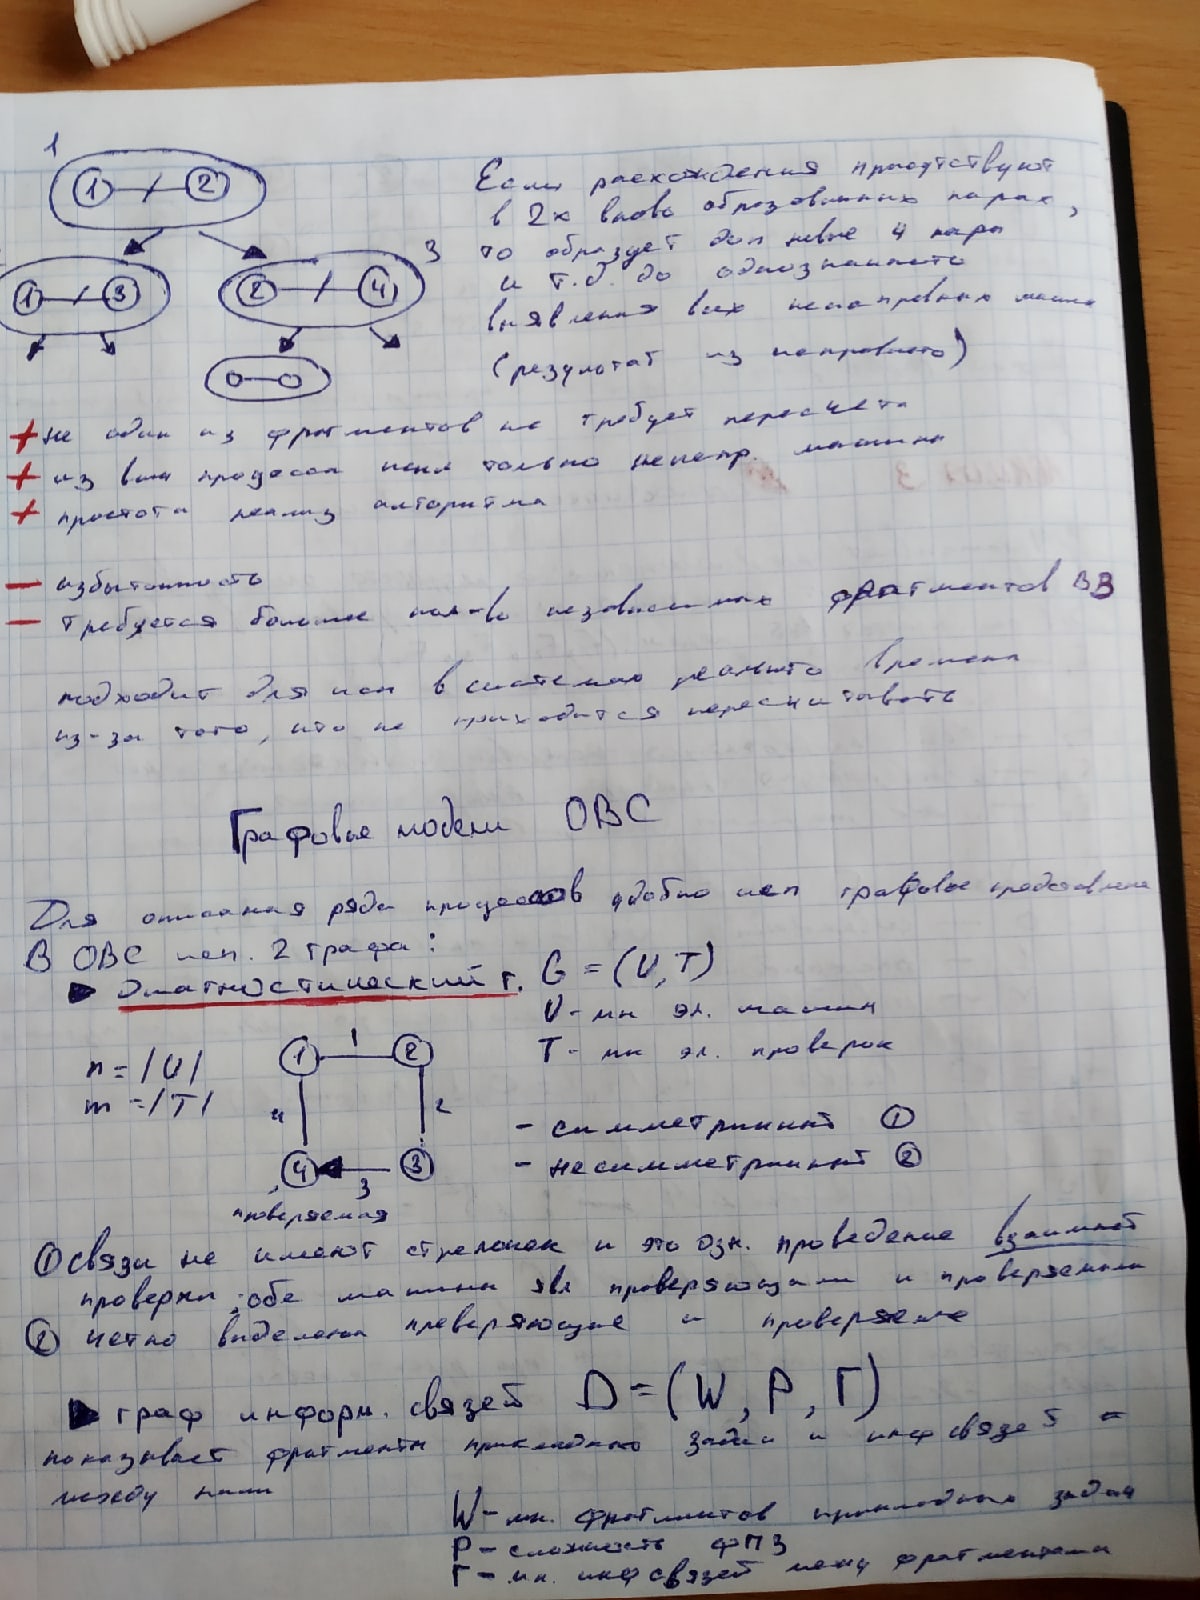 1
1 2
3
1 3
2 4
Если расхождения присутствуют
в 2х вновь образованных парах,
то образует доп новые 4 пары
и т.д. до однозначного
выявления всех неисправных машин
(результат из исправного)
+ не один из фрагментов не требует пересчета
+ из выч процесса искл только неиспр. машина
+ простота реализ алгоритма
- избыточность
- требуется большое кол-во независимых фрагментов ВЗ
подходит для исп в системах реального времени
из-за того, что не приходится пересчитывать
Графовые модели ОВС
Для описания ряда процессов удобно исп графовое представление
В ОВС исп. 2 графа:
Диагностический г. G = (U,T)
U - мн эл. машин
T - мн эл. проверок
n = |U|
m = |T|
1 1 2
4 2
4 3 3
проверяемая
- симметричный ①
- несимметричный ②
① связи не имеют стрелочек и это озн. проведение взаимной
проверки, обе машины явл проверяющими и проверяемыми
② четко выделены проверяющие и проверяемые
граф информ. связей D = (W, P, Г)
показывает фрагменты прикладной задачи и инф связей
между ними
W - мн. фрагментов прикладных задач
P - сложность ФПЗ
Г - мн. инф связей между фрагментами